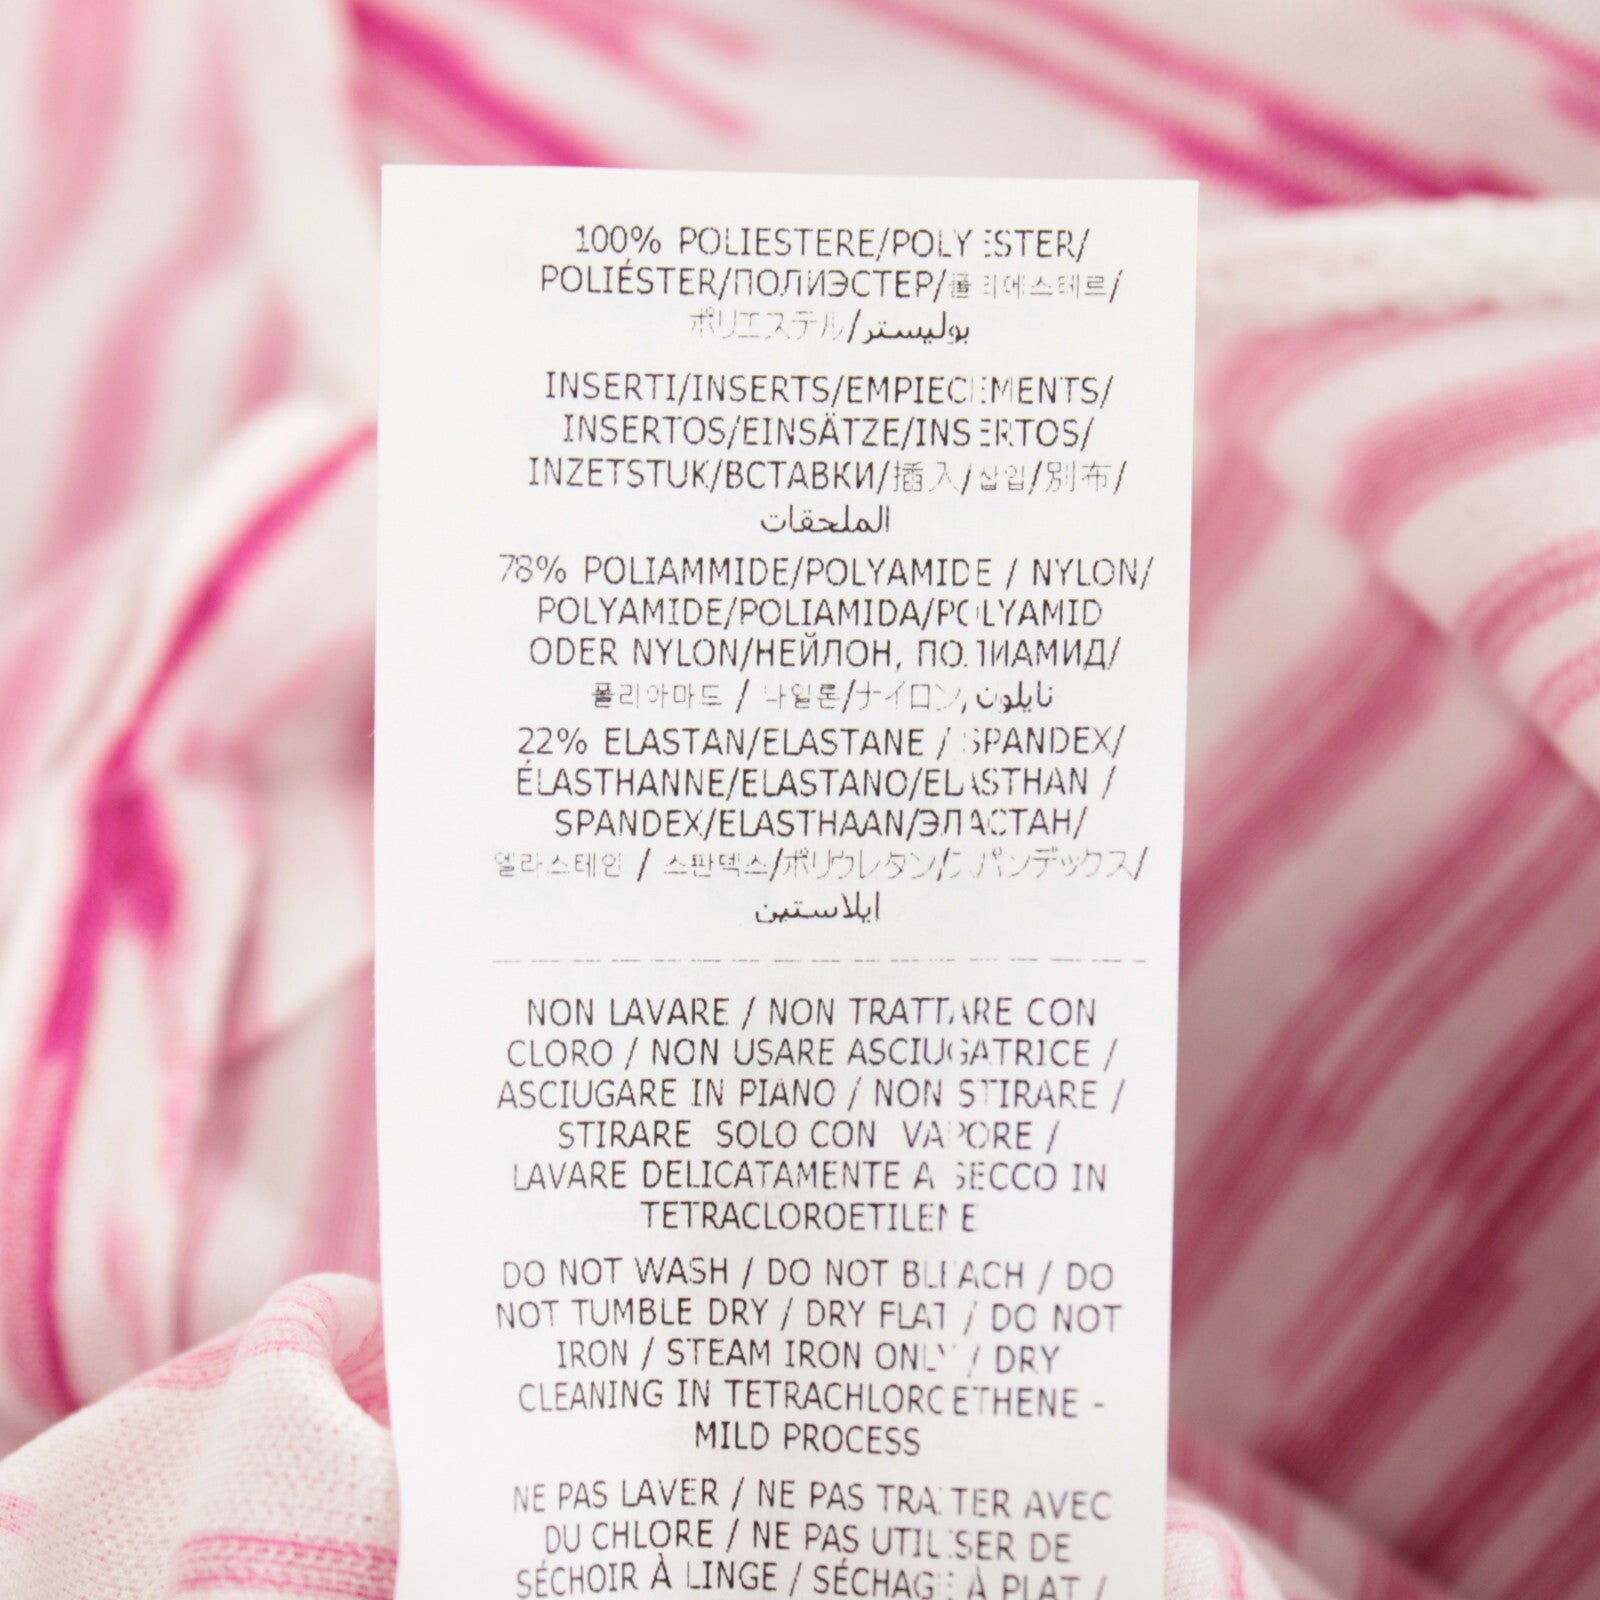 100% POLIESTERE/POLYESTER/
POLIÉSTER/ПОЛИЭСТЕР/폴리에스테르/
ポリエステル/بوليستر
INSERTI/INSERTS/EMPIECEMENTS/
INSERTOS/EINSÄTZE/INSERTOS/
INZETSTUK/ВСТАВКИ/插入/삽입/別布/
الملحقات
78% POLIAMMIDE/POLYAMIDE / NYLON/
POLYAMIDE/POLIAMIDA/POLYAMID
ODER NYLON/НЕЙЛОН, ПОЛИАМИД/
폴리아마드 / 나일론/ナイロン, نايلون
22% ELASTAN/ELASTANE / SPANDEX/
ÉLASTHANNE/ELASTANO/ELASTHAN /
SPANDEX/ELASTHAAN/ЭЛАСТАН/
엘라스테인 / 스판덱스/ポリウレタン/スパンデックス/
ايلاستين
NON LAVARE / NON TRATTARE CON
CLORO / NON USARE ASCIUGATRICE /
ASCIUGARE IN PIANO / NON STIRARE /
STIRARE SOLO CON VAPORE /
LAVARE DELICATAMENTE A SECCO IN
TETRACLOROETILENE
DO NOT WASH / DO NOT BLEACH / DO
NOT TUMBLE DRY / DRY FLAT / DO NOT
IRON / STEAM IRON ONLY / DRY
CLEANING IN TETRACHLOROETHENE -
MILD PROCESS
NE PAS LAVER / NE PAS TRAITER AVEC
DU CHLORE / NE PAS UTILISER DE
SÉCHOIR À LINGE / SÉCHAGE À PLAT /